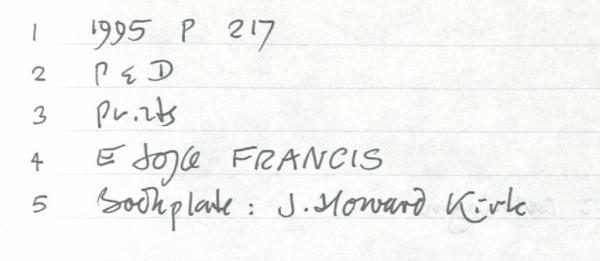 1 1995 P 217
2 P & D
3 Prints
4 E Joyce FRANCIS
5 Bookplate : J. Howard Kirk